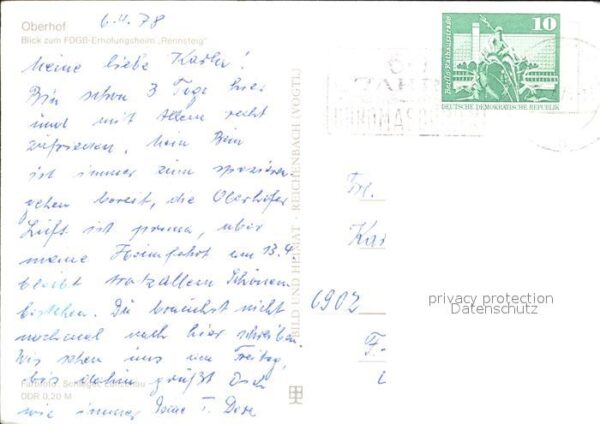 Oberhof
Blick zum FDGB-Erholungsheim „Rennsteig"
6.4.78
Meine liebe Karla!
Bin schon 3 Tage hier
und mit Allem recht
zufrieden. Mein Bein
ist immer zum spazieren-
gehen bereit, die Oberhofer
Luft ist prima, aber
meine Heimfahrt am 13.4
bleibt trotz allem Schönem
bestehen. Du brauchst nicht
nochmal nach hier schreiben.
Wir sehen uns am Freitag,
bis dahin grüßt Dich
wie immer T. Dore
DDR 0,20 M
BILD UND HEIMAT · REICHENBACH (VOGTL)
10
Berlin-Rathausstraße
DEUTSCHE DEMOKRATISCHE REPUBLIK
Frl.
Kar
6902
privacy protection
Datenschutz
F.